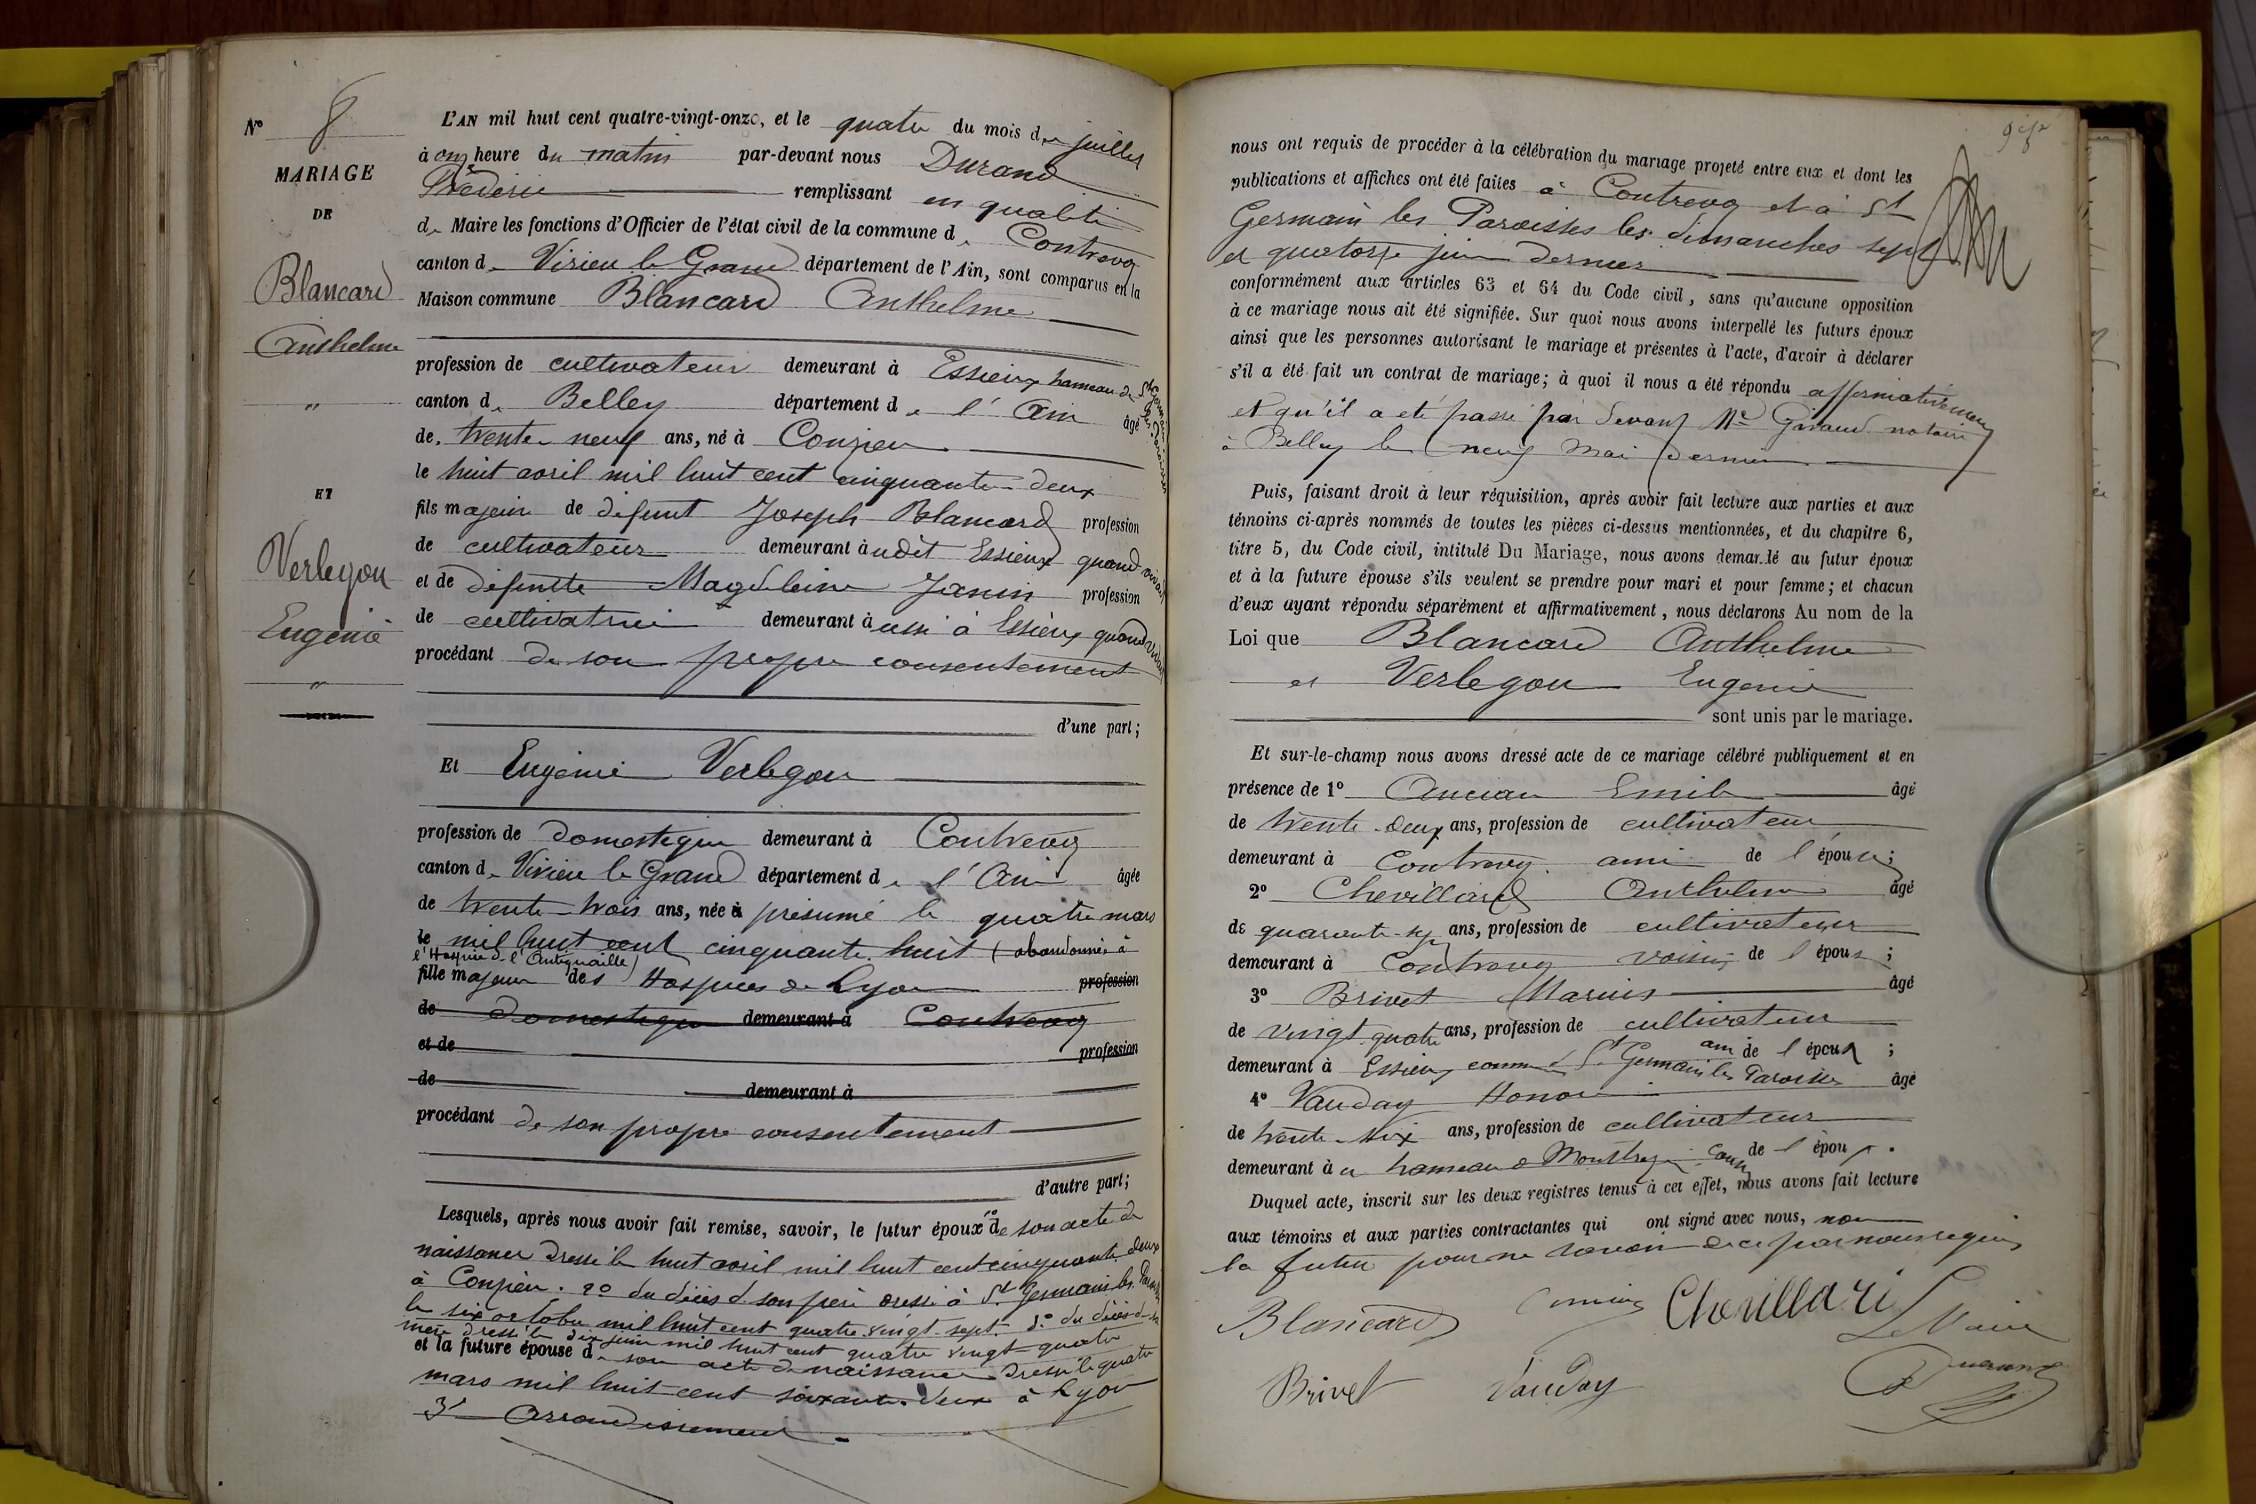 N° 8
MARIAGE
DE
Blancard
Anthelme
"
ET
Verlegou
Eugénie
"
L'AN mil huit cent quatre-vingt-onze, et le quatre du mois de juillet
à onze heure du matin par-devant nous Durand
Frédéric remplissant en qualité
de Maire les fonctions d'Officier de l'état civil de la commune de Contrevoz
canton de Virieu le Grand département de l'Ain, sont comparus en la
Maison commune Blancard Anthelme
profession de cultivateur demeurant à Essieux hameau de St Germain les Paroisses
canton de Belley département de l'Ain âgé
de trente-neuf ans, né à Conzieu
le huit avril mil huit cent cinquante-deux
fils majeur de défunt Joseph Blancard profession
de cultivateur demeurant àudit Essieux quand vivait
et de défunte Magdeleine Janin profession
de cultivatrice demeurant à aussi à Essieux quand vivait
procédant de son propre consentement
d'une part;
Et Eugénie Verlegou
profession de domestique demeurant à Contrevoz
canton de Virieu le Grand département de l'Ain âgée
de trente-trois ans, née à présumé le quatre mars
le mil huit cent cinquante huit (abandonnée à
l'Hospice de l'Antiquaille)
fille majeure des Hospices de Lyon profession
de domestique demeurant à Contrevoz
et de profession
de demeurant à
procédant de son propre consentement
d'autre part;
Lesquels, après nous avoir fait remise, savoir, le futur époux 1° de son acte de
naissance dressé le huit avril mil huit cent cinquante deux
à Conzieu. 2° du décès de son père dressé à St Germain les Paroisses
le six octobre mil huit cent quatre vingt-sept. 3° du décès de sa
mère dressé le dix juin mil huit cent quatre vingt quatre
et la future épouse de son acte de naissance dressé le quatre
mars mil huit cent soixante-deux à Lyon
3e Arrondissement
nous ont requis de procéder à la célébration du mariage projeté entre eux et dont les
publications et affiches ont été faites à Contrevoz et à St
Germain les Paroisses les dimanches sept
et quatorze juin dernier
conformément aux articles 63 et 64 du Code civil, sans qu'aucune opposition
à ce mariage nous ait été signifiée. Sur quoi nous avons interpellé les futurs époux
ainsi que les personnes autorisant le mariage et présentes à l'acte, d'avoir à déclarer
s'il a été fait un contrat de mariage; à quoi il nous a été répondu affirmativement
et qu'il a été passé par devant Me Giraud notaire
à Belley le neuf Mai dernier
Puis, faisant droit à leur réquisition, après avoir fait lecture aux parties et aux
témoins ci-après nommés de toutes les pièces ci-dessus mentionnées, et du chapitre 6,
titre 5, du Code civil, intitulé Du Mariage, nous avons demandé au futur époux
et à la future épouse s'ils veulent se prendre pour mari et pour femme; et chacun
d'eux ayant répondu séparément et affirmativement, nous déclarons Au nom de la
Loi que Blancard Anthelme
et Verlegou Eugénie
sont unis par le mariage.
Et sur-le-champ nous avons dressé acte de ce mariage célébré publiquement et en
présence de 1° Ancian Emile âgé
de trente-deux ans, profession de cultivateur
demeurant à Contrevoz ami de l'épouse;
2° Chevillard Anthelme âgé
de quarante-sept ans, profession de cultivateur
demeurant à Contrevoz voisin de l'épouse;
3° Brivet Marius âgé
de vingt quatre ans, profession de cultivateur
demeurant à Essieux commune St Germain les Paroisses ami de l'époux;
4° Vauday Honoré âgé
de trente-six ans, profession de cultivateur
demeurant à hameau de cousin de l'époux.
Duquel acte, inscrit sur les deux registres tenus à cet effet, nous avons fait lecture
aux témoins et aux parties contractantes qui ont signé avec nous, non
la future pour ne savoir de ce par nous requis
Blancard Chevillard Le Maire
Brivet Vauday Durand